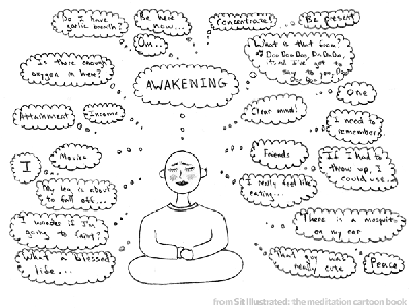 Do I have
garlic breath?
Be here
now...
Om...
Concentrate!
Be present
Is there enough
oxygen in here?
AWAKENING
What is that from?
"Dum Dum Dum, Da Da Da
And I've got to
say to you,
One
Attainment
Income
Clear mind
I need to
remember
I
Movies
Friends
If I had to
throw up, I
could use...
My leg is about
to fall off...
I really feel like
eating...
I wonder if I'm
going to faint?
There is a mosquito
on my ear
What a blessed
life...
That guy was
really cute
Peace
From Sit Illustrated: the meditation cartoon book